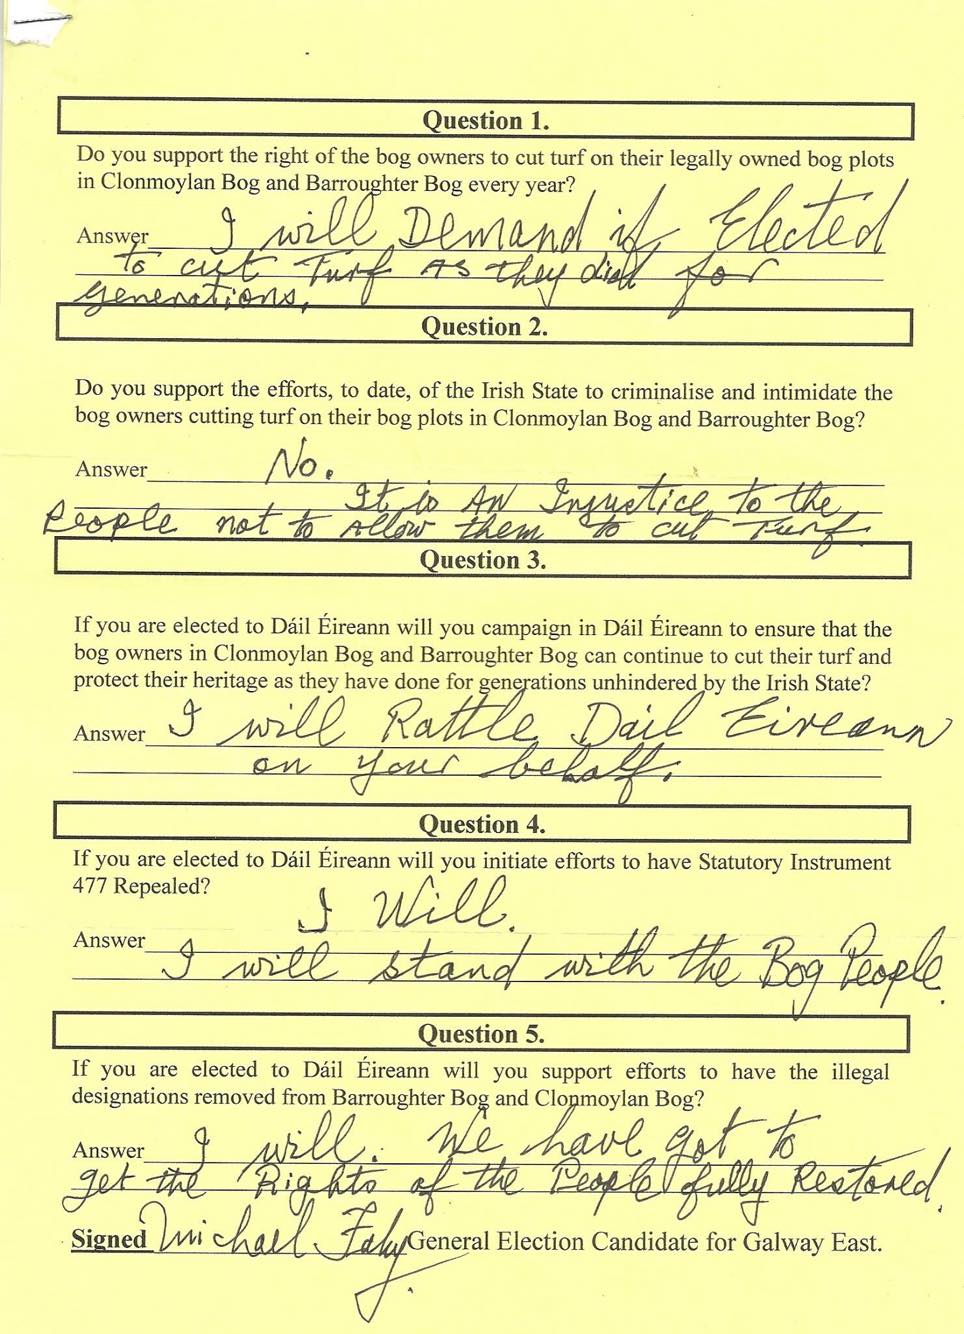 Question 1.
Do you support the right of the bog owners to cut turf on their legally owned bog plots
in Clonmoylan Bog and Barroughter Bog every year?
Answer I will Demand if Elected
to cut Turf As they did for
generations.
Question 2.
Do you support the efforts, to date, of the Irish State to criminalise and intimidate the
bog owners cutting turf on their bog plots in Clonmoylan Bog and Barroughter Bog?
Answer No.
It is AN Injustice to the
People not to Allow them to cut Turf.
Question 3.
If you are elected to Dáil Éireann will you campaign in Dáil Éireann to ensure that the
bog owners in Clonmoylan Bog and Barroughter Bog can continue to cut their turf and
protect their heritage as they have done for generations unhindered by the Irish State?
Answer I will Rattle Dail Eireann
on your behalf.
Question 4.
If you are elected to Dáil Éireann will you initiate efforts to have Statutory Instrument
477 Repealed?
I Will.
Answer
I will stand with the Bog People.
Question 5.
If you are elected to Dáil Éireann will you support efforts to have the illegal
designations removed from Barroughter Bog and Clonmoylan Bog?
Answer I will. We have got to
get the Rights of the People fully Restored.
Signed Michael Fahy General Election Candidate for Galway East.